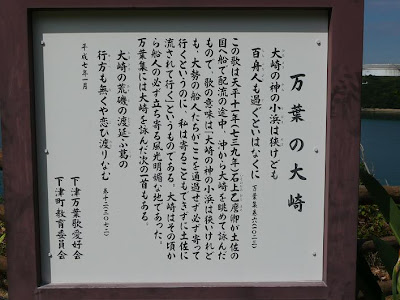 万葉の大崎
大崎の神の小浜は狭けども
百舟人も過ぐといはなくに
万葉集巻六(一〇二三)
この歌は天平十一年(七三九年)石上乙麿卿が土佐の
国へ船で配流の途中、沖から大崎を眺めて詠んだ
もので、歌の意味は「大崎の神の小浜は狭いけれど
も、大勢の船人たちがここを通過せず必ず寄って
行くというのに、私は寄ることもできずに土佐に
流されて行く」というものである。大崎はその頃か
ら船人の必ず立ち寄る風光明媚な地であった。
万葉集には大崎を詠んだ次の一首もある。
大崎の荒磯の渡延ふ葛の
行方も無くや恋ひ渡りなむ
巻十二(三〇七二)
平成七年一月
下津万葉歌愛好会
下津町教育委員会